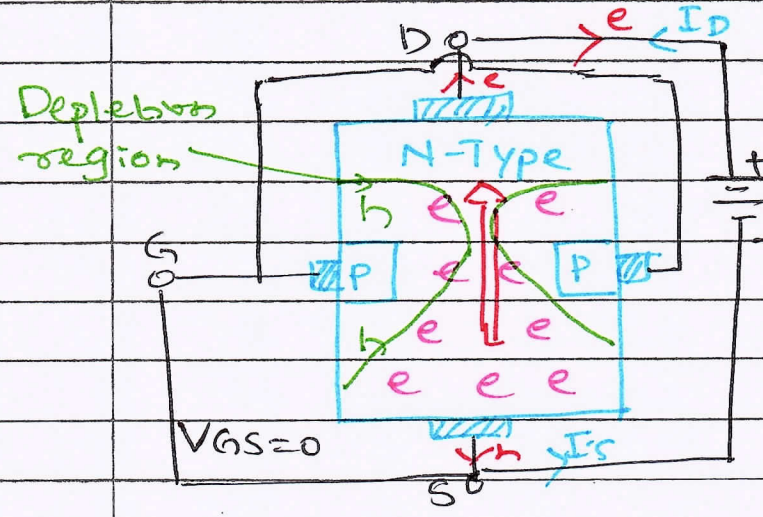 D e ID
e
Depletion
region
N-Type
h e e
G
P e e P
h e e
e e e
VGS=0
h Is
S
+
-